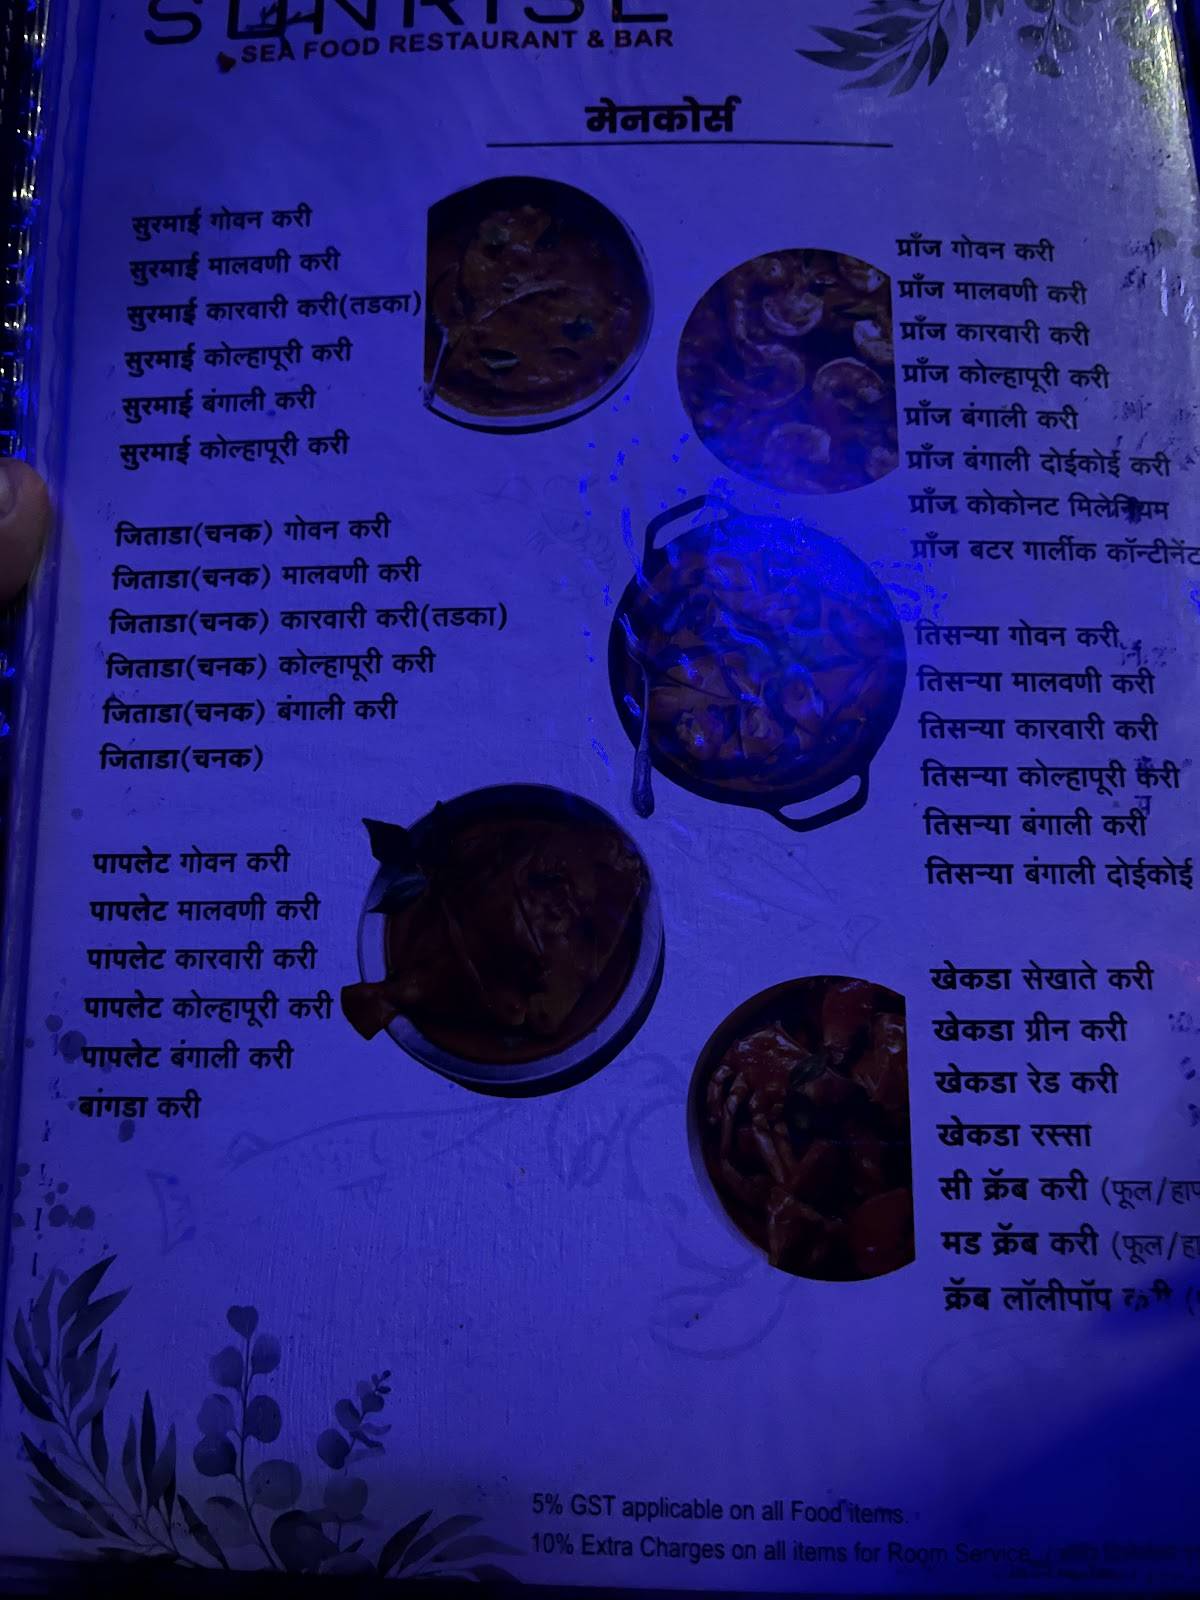 SUNRISE
SEA FOOD RESTAURANT & BAR
मेनकोर्स
सुरमाई गोवन करी
सुरमाई मालवणी करी
सुरमाई कारवारी करी(तडका)
सुरमाई कोल्हापूरी करी
सुरमाई बंगाली करी
सुरमाई कोल्हापूरी करी
जिताडा(चनक) गोवन करी
जिताडा(चनक) मालवणी करी
जिताडा(चनक) कारवारी करी(तडका)
जिताडा(चनक) कोल्हापूरी करी
जिताडा(चनक) बंगाली करी
जिताडा(चनक)
पापलेट गोवन करी
पापलेट मालवणी करी
पापलेट कारवारी करी
पापलेट कोल्हापूरी करी
पापलेट बंगाली करी
बांगडा करी
प्रॉंज गोवन करी
प्रॉंज मालवणी करी
प्रॉंज कारवारी करी
प्रॉंज कोल्हापूरी करी
प्रॉंज बंगाली करी
प्रॉंज बंगाली दोईकोई करी
प्रॉंज कोकोनट मिलेनियम
प्रॉंज बटर गार्लीक
तिसऱ्या गोवन करी
तिसऱ्या मालवणी करी
तिसऱ्या कारवारी करी
तिसऱ्या कोल्हापूरी करी
तिसऱ्या बंगाली करी
तिसऱ्या बंगाली दोईकोई
खेकडा सेखाते करी
खेकडा ग्रीन करी
खेकडा रेड करी
खेकडा रस्सा
सी क्रॅब करी (फूल/
मड क्रॅब करी (फूल/
क्रॅब लॉलीपॉप करी
5% GST applicable on all Food items.
10% Extra Charges on all items for Room Service.